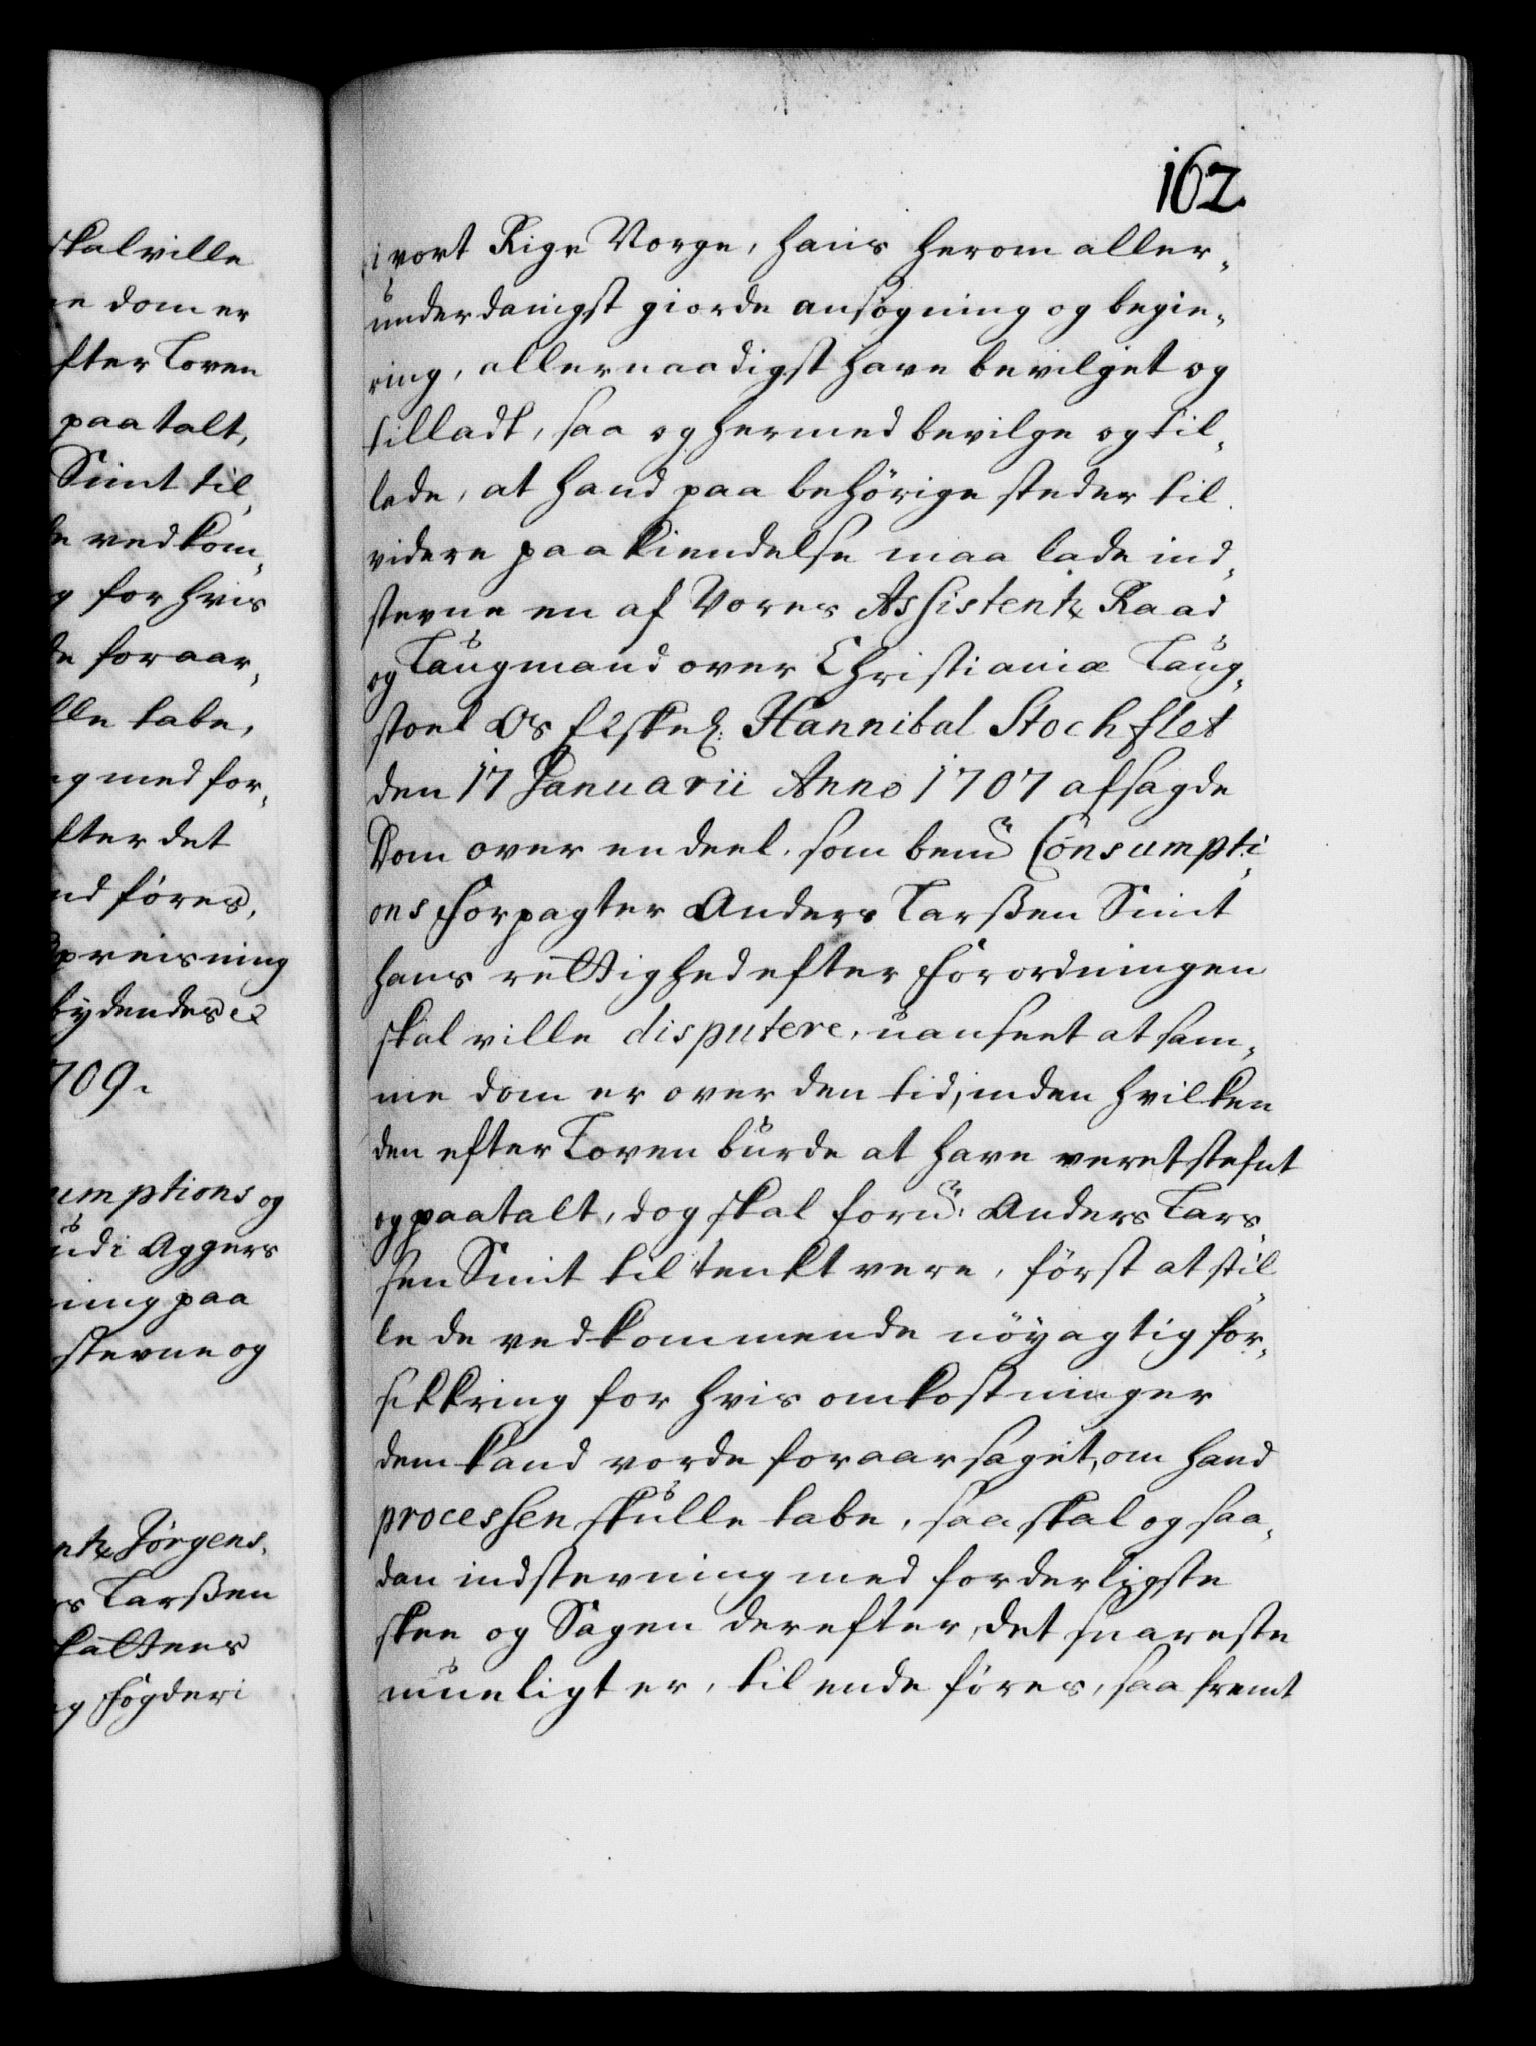 skal ville
ne dom er
fter Loven
paatalt,
Smit til
de vedkom¬
g for hvis
de foraar¬
lle tabe,
ng med for¬
fter det
nd føres,
preisning
bydendes
709.
umptions og
ud i Aggers
ning paa
stevne og
ntz Jørgens
rs Larßen
kattens
g fogderi
162.
i vort Rige Norge, hans herom aller¬
underdanigst giorde ansøgning og begie¬
ring, allernaadigst have bevilget og
tilladt, saa og hermed bevilge og til¬
lade, at hand paa behørige steder til
videre paakiendelse maa lade ind¬
stevne en af Vores Assistentz Raad
og Laugmand over Christianiæ Laug¬
stoel Os Elskel: Hannibal Stochflet
den 17 Januarii Anno 1707 afsagde
Dom over en deel, som bemte Consumpti¬
ons Forpagter Anders Larßen Smit
hans rettighed efter Forordningen
skal ville disputere, uanseet at sam¬
me dom er over den tid, inden hvilken
den efter Loven burde at have veret stefnt
og paatalt, dog skal forn: Anders Lars¬
sen Smit tiltenkt vere, først at stil¬
le de vedkommende nøyagtig for¬
sikkring for hvis omkostninger
dem kand vorde foraarsaget, om hand
processen skulle tabe, saa skal og saa¬
dan indstevning med forderligste
skee og Sagen derefter, det snareste
mueligt er, til ende føres, saafremt